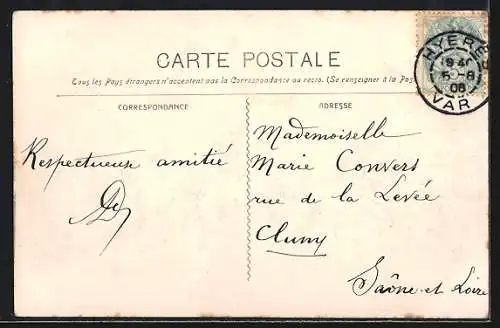 CARTE POSTALE
Tous les Pays étrangers n'acceptent pas la Correspondance au recto. (Se renseigner à la Pos
CORRESPONDANCE
ADRESSE
Respectueuse amitié
Mademoiselle
Marie Convers
rue de la Levée
Cluny
Saône et Loire
HYERES
5-8
08
VAR